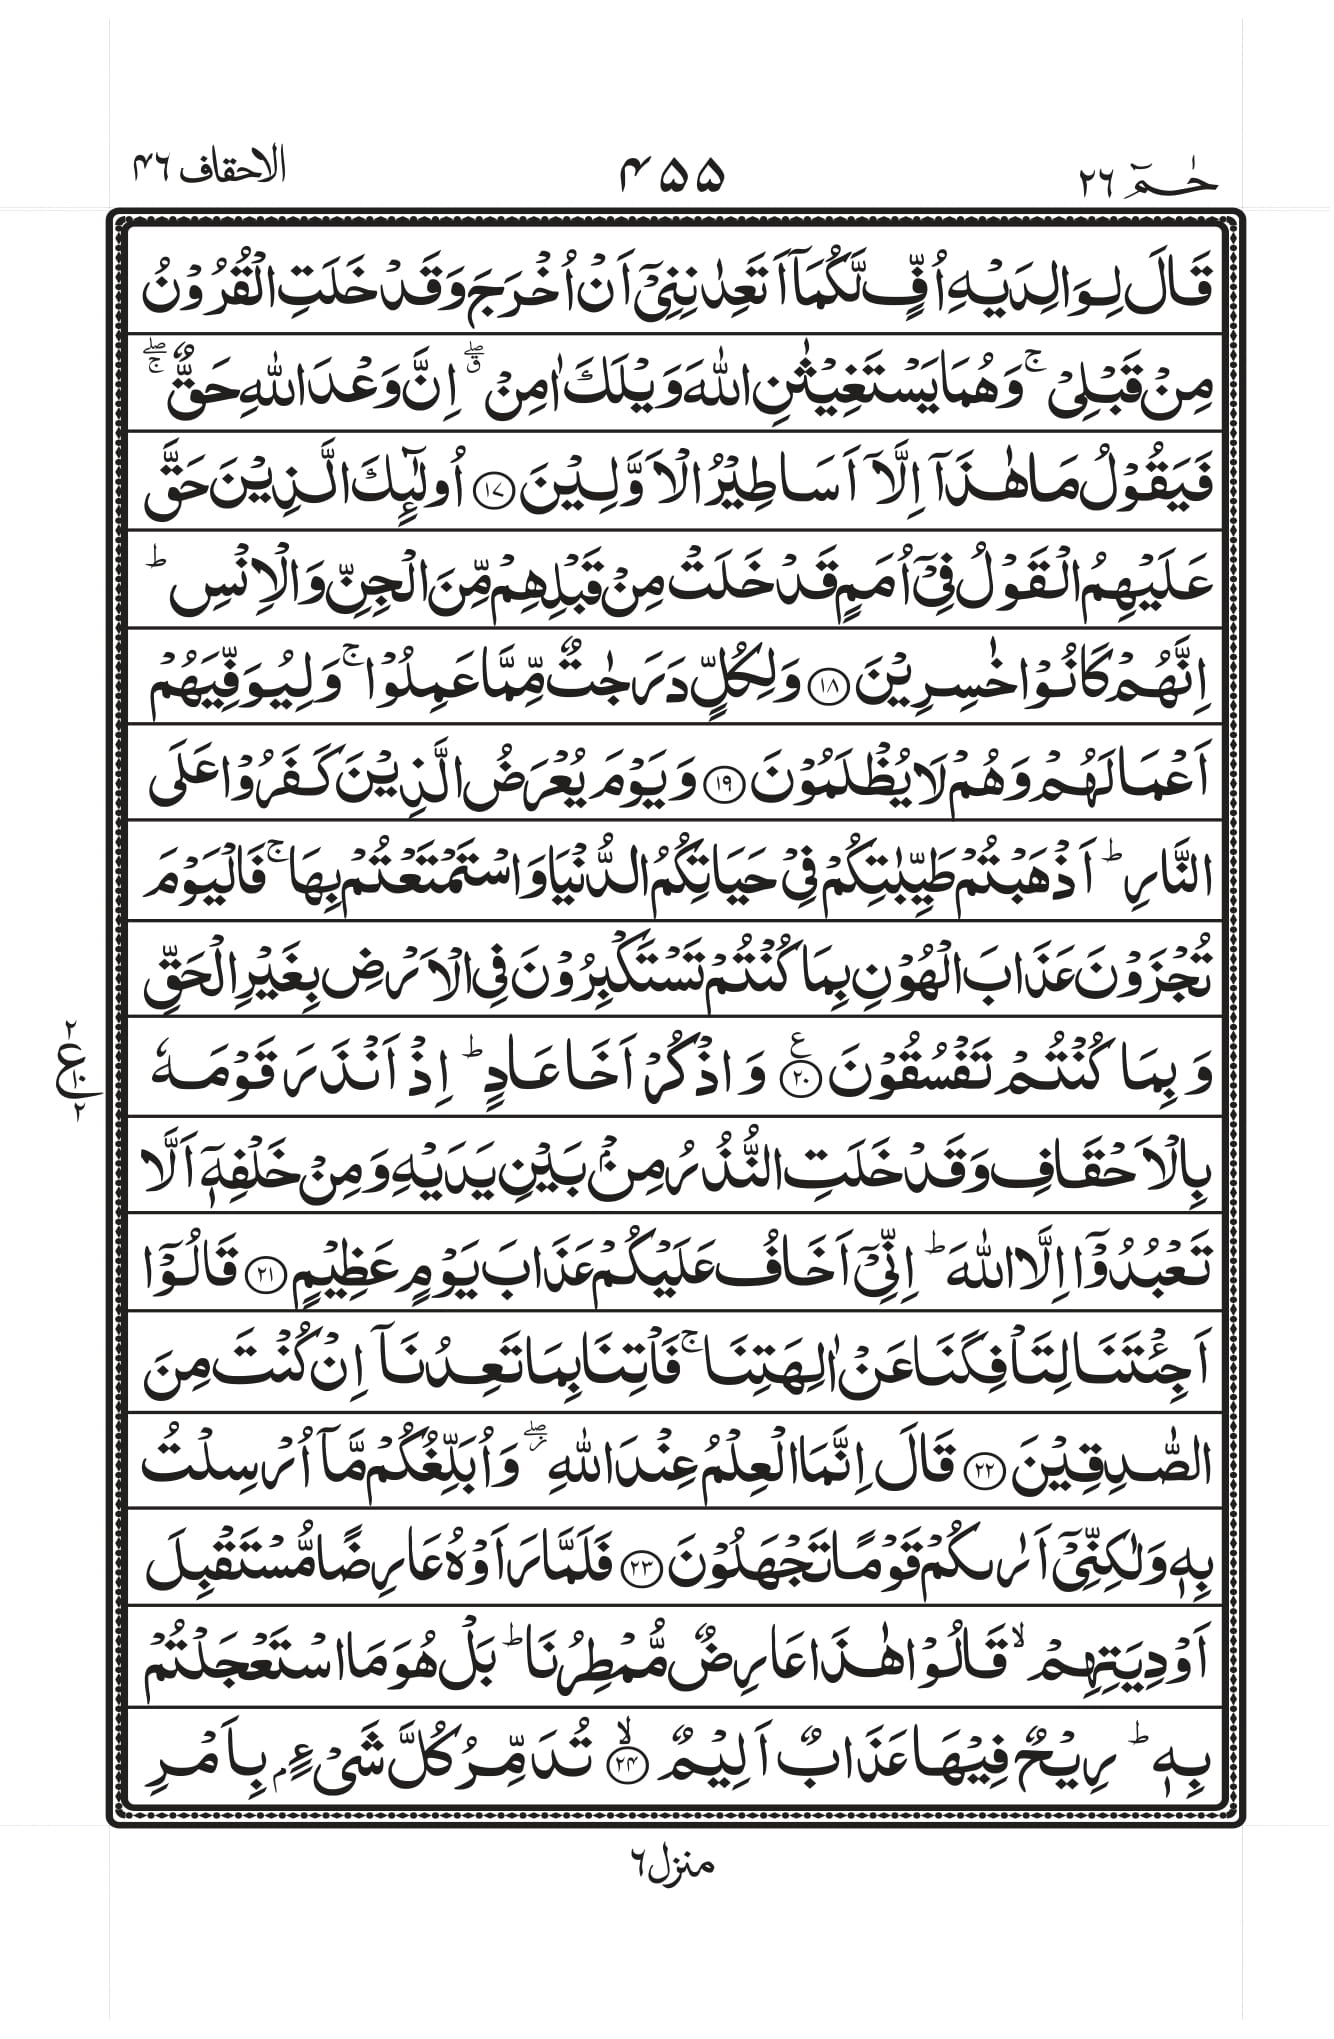 حٰمٓ ٢٦
۴۵۵
الاحقاف ۴٦
قَالَ لِوَالِدَيْهِ اُفٍّ لَّكُمَاۤ اَتَعِدٰنِنِيْۤ اَنْ اُخْرَجَ وَقَدْ خَلَتِ الْقُرُوْنُ
مِنْ قَبْلِيْ ۚ وَهُمَا يَسْتَغِيْثٰنِ اللّٰهَ وَيْلَكَ اٰمِنْ ۖق اِنَّ وَعْدَ اللّٰهِ حَقٌّ ۖۚ
فَيَقُوْلُ مَا هٰذَاۤ اِلَّاۤ اَسَاطِيْرُ الْاَوَّلِيْنَ ﴿١٧﴾ اُولٰٓئِكَ الَّذِيْنَ حَقَّ
عَلَيْهِمُ الْقَوْلُ فِيْۤ اُمَمٍ قَدْ خَلَتْ مِنْ قَبْلِهِمْ مِّنَ الْجِنِّ وَالْاِنْسِ ؕ
اِنَّهُمْ كَانُوْا خٰسِرِيْنَ ﴿١٨﴾ وَلِكُلٍّ دَرَجٰتٌ مِّمَّا عَمِلُوْا ۚ وَلِيُوَفِّيَهُمْ
اَعْمَالَهُمْ وَهُمْ لَا يُظْلَمُوْنَ ﴿١٩﴾ وَيَوْمَ يُعْرَضُ الَّذِيْنَ كَفَرُوْا عَلَى
النَّارِ ؕ اَذْهَبْتُمْ طَيِّبٰتِكُمْ فِيْ حَيَاتِكُمُ الدُّنْيَا وَاسْتَمْتَعْتُمْ بِهَا ۚ فَالْيَوْمَ
تُجْزَوْنَ عَذَابَ الْهُوْنِ بِمَا كُنْتُمْ تَسْتَكْبِرُوْنَ فِي الْاَرْضِ بِغَيْرِ الْحَقِّ
وَبِمَا كُنْتُمْ تَفْسُقُوْنَ ﴿٢٠﴾ ع وَاذْكُرْ اَخَا عَادٍ ؕ اِذْ اَنْذَرَ قَوْمَهٗ
٢ ع ١٠ ٢
بِالْاَحْقَافِ وَقَدْ خَلَتِ النُّذُرُ مِنْۢ بَيْنِ يَدَيْهِ وَمِنْ خَلْفِهٖۤ اَلَّا
تَعْبُدُوْۤا اِلَّا اللّٰهَ ؕ اِنِّيْۤ اَخَافُ عَلَيْكُمْ عَذَابَ يَوْمٍ عَظِيْمٍ ﴿٢١﴾ قَالُوْۤا
اَجِئْتَنَا لِتَاْفِكَنَا عَنْ اٰلِهَتِنَا ۚ فَاْتِنَا بِمَا تَعِدُنَاۤ اِنْ كُنْتَ مِنَ
الصّٰدِقِيْنَ ﴿٢٢﴾ قَالَ اِنَّمَا الْعِلْمُ عِنْدَ اللّٰهِ ۖز وَاُبَلِّغُكُمْ مَّاۤ اُرْسِلْتُ
بِهٖ وَلٰكِنِّيْۤ اَرٰىكُمْ قَوْمًا تَجْهَلُوْنَ ﴿٢٣﴾ فَلَمَّا رَاَوْهُ عَارِضًا مُّسْتَقْبِلَ
اَوْدِيَتِهِمْ ۙ قَالُوْا هٰذَا عَارِضٌ مُّمْطِرُنَا ؕ بَلْ هُوَ مَا اسْتَعْجَلْتُمْ
بِهٖ ؕ رِيْحٌ فِيْهَا عَذَابٌ اَلِيْمٌ ۙ﴿٢۴﴾ تُدَمِّرُ كُلَّ شَيْءٍۭ بِاَمْرِ
منزل ٦